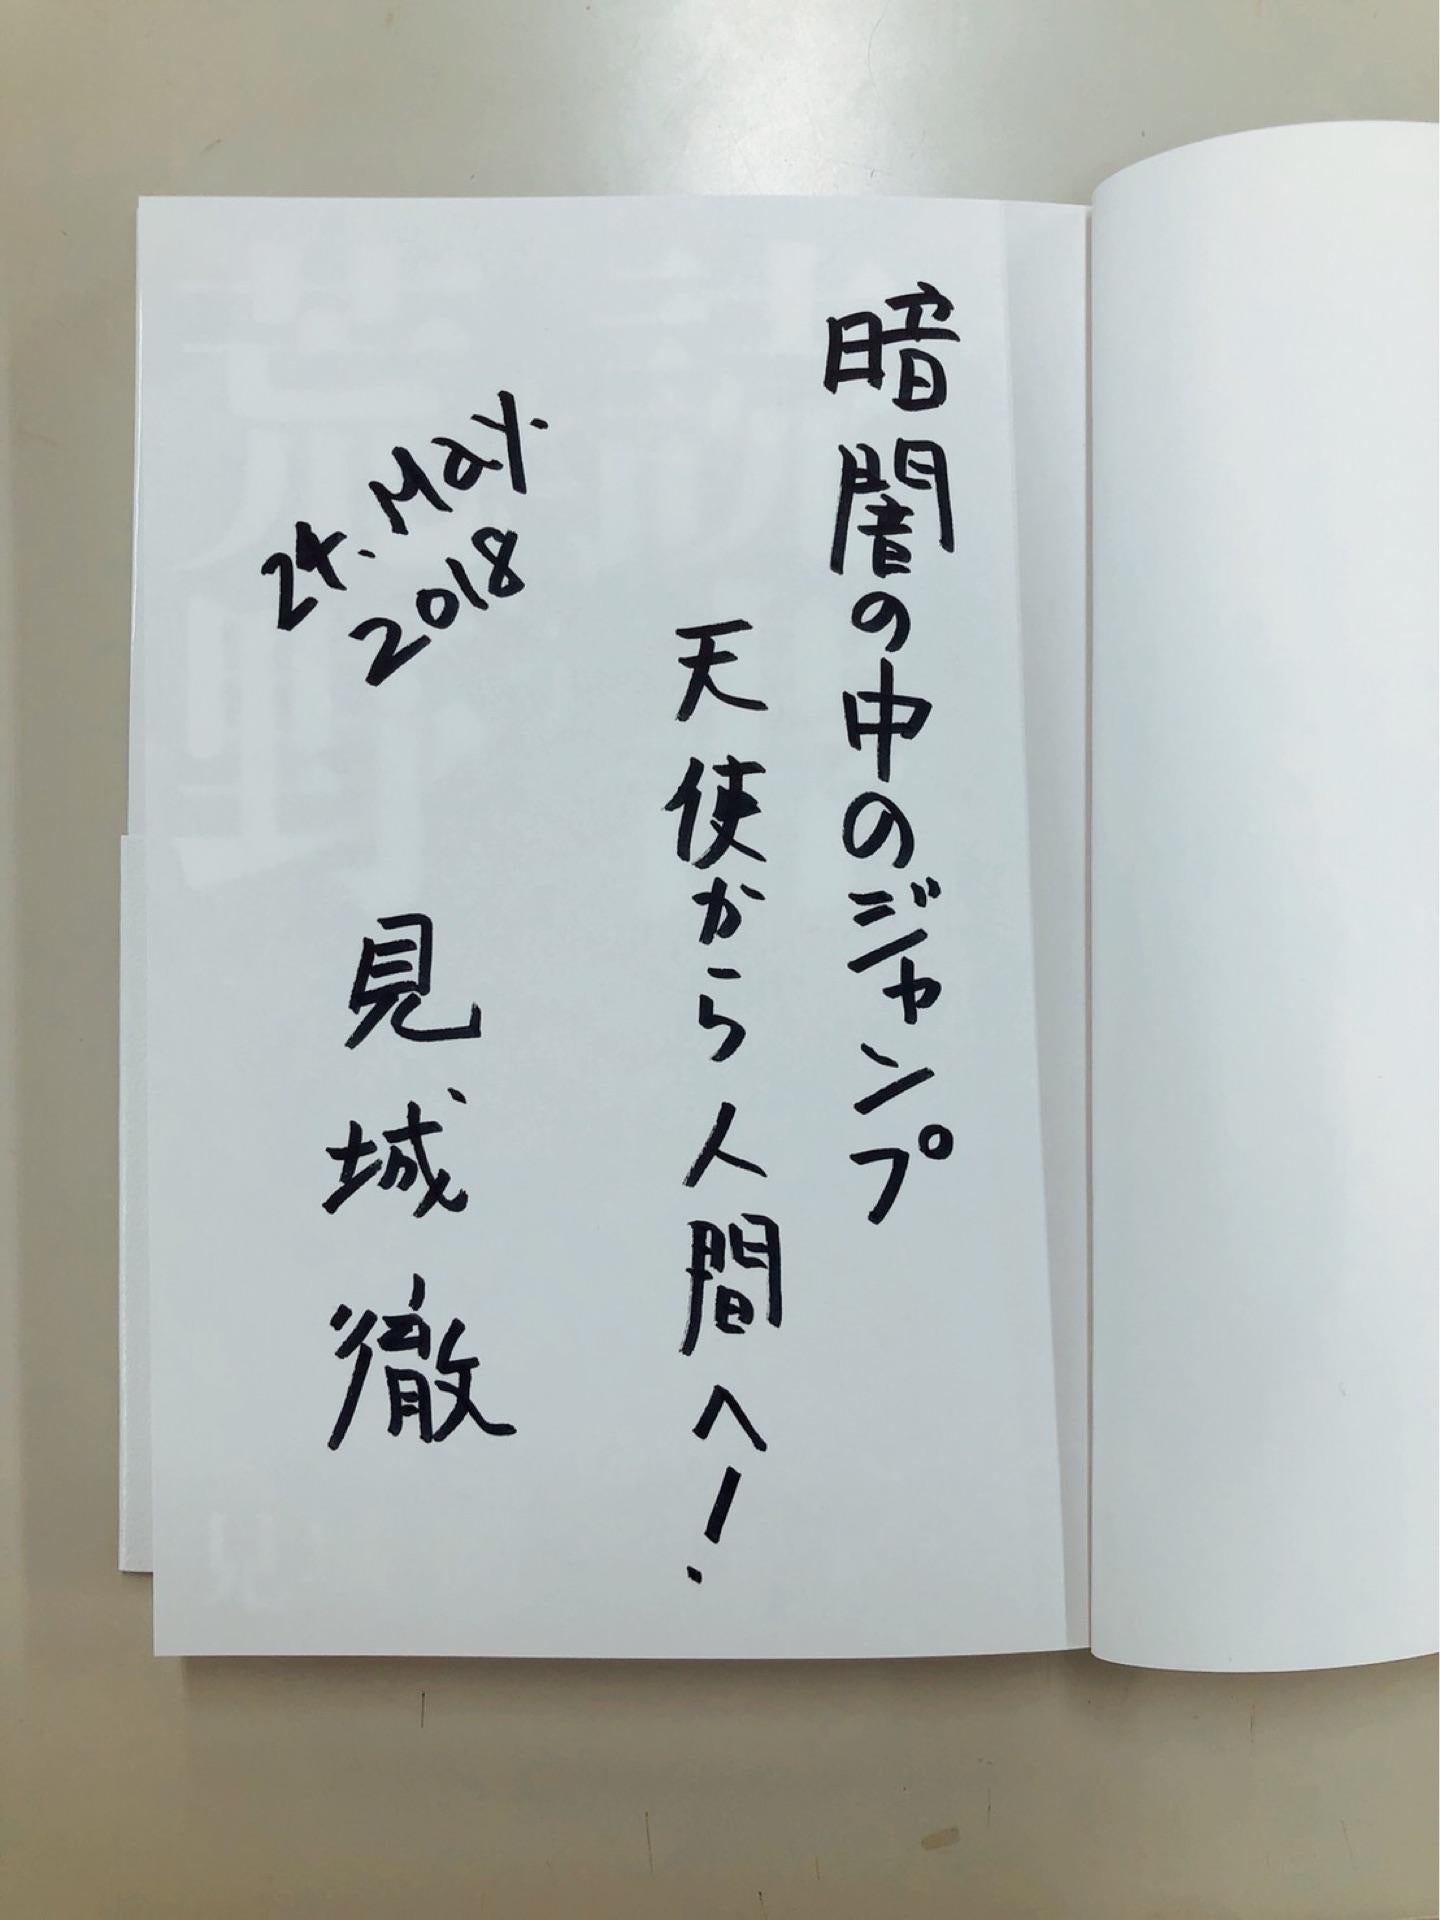 暗闇の中のジャンプ
天使から人間へ!
24. May.
2018
見城徹